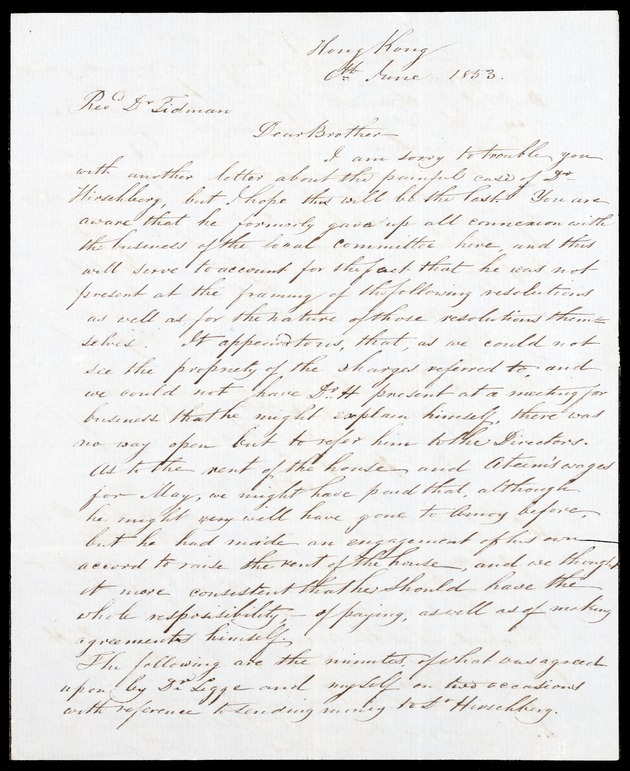 Hong Kong
6th June 1853.
Revd Dr Tidman
Dear Brother
I am sorry to trouble you
with another letter about the painful case of Dr
Hirschberg, but I hope this will be the last. You are
aware that he formerly gave up all connexion with
the business of the local committee here, and this
will serve to account for the fact that he was not
present at the framing of the following resolutions
as well as for the nature of those resolutions them=
selves. It appeared to us, that, as we could not
see the propriety of the charges referred to, and
we could not have Dr. H present at a meeting for
business that he might explain himself, there was
no way open but to refer him to the Directors.
As to the rent of the house and wages
for May, we might have paid that, although
he might very well have gone to Amoy before,
but he had made an engagement of his own
accord to raise the rent of the house and we thought
it more consistent that he should have the
whole resposibility of paying, as well as of making
agreements himself.
The following are the minutes, of what was agreed
upon by Dr Legge and myself on two occasions
with reference to sending money to Dr Hirschberg.